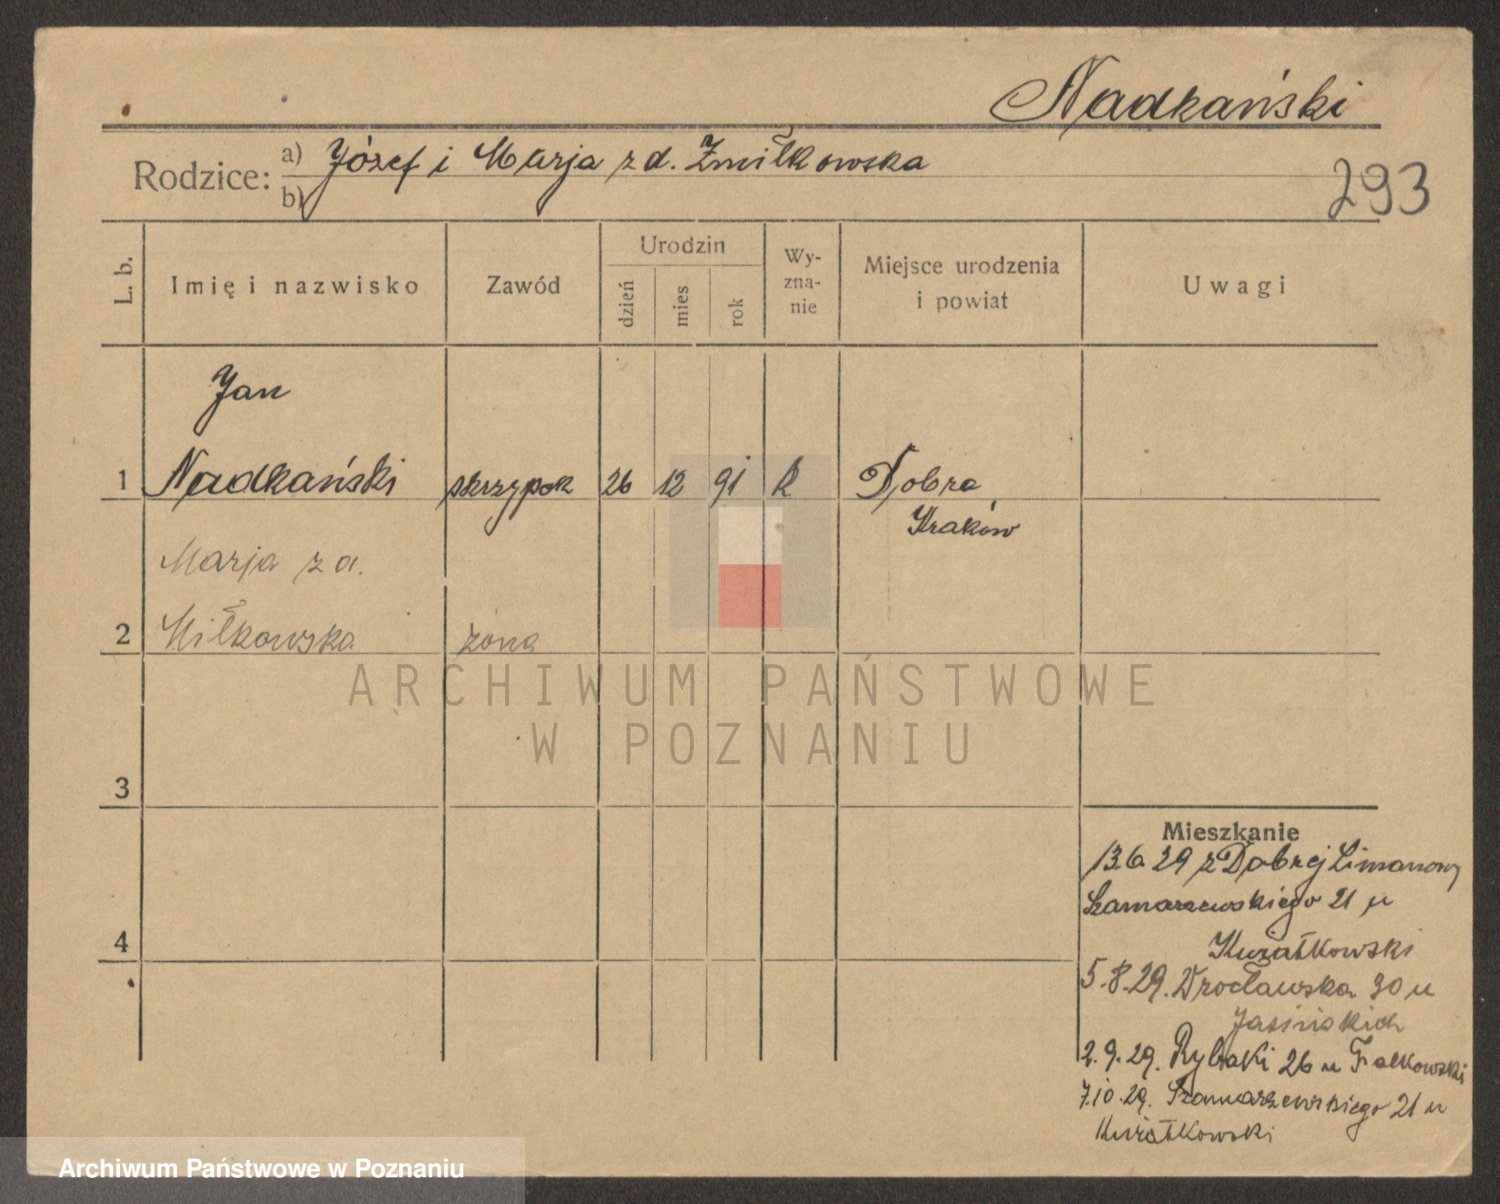 Nadkański
Rodzice: a) Józef i Marja z d. Żmiłkowska
b)
293
L. b.
Imię i nazwisko
Zawód
Urodzin
dzień
mies
rok
Wy-
zna-
nie
Miejsce urodzenia
i powiat
Uwagi
Jan
1 Nadkański skrzypek 26 12 91 k Dobra
Kraków
Marja z d.
2 Miłkowska żona
ARCHIWUM PAŃSTWOWE
W POZNANIU
3
4
Mieszkanie
13.6 29 z Dobrej Limanowy
Szamarzewskiego 21 u
5.8.29. Wrocławska 30 u
Jasińskich
2.9.29. Rybaki 26 u Falkowski
7.10.29. Szamarzewskiego 21 u
Archiwum Państwowe w Poznaniu